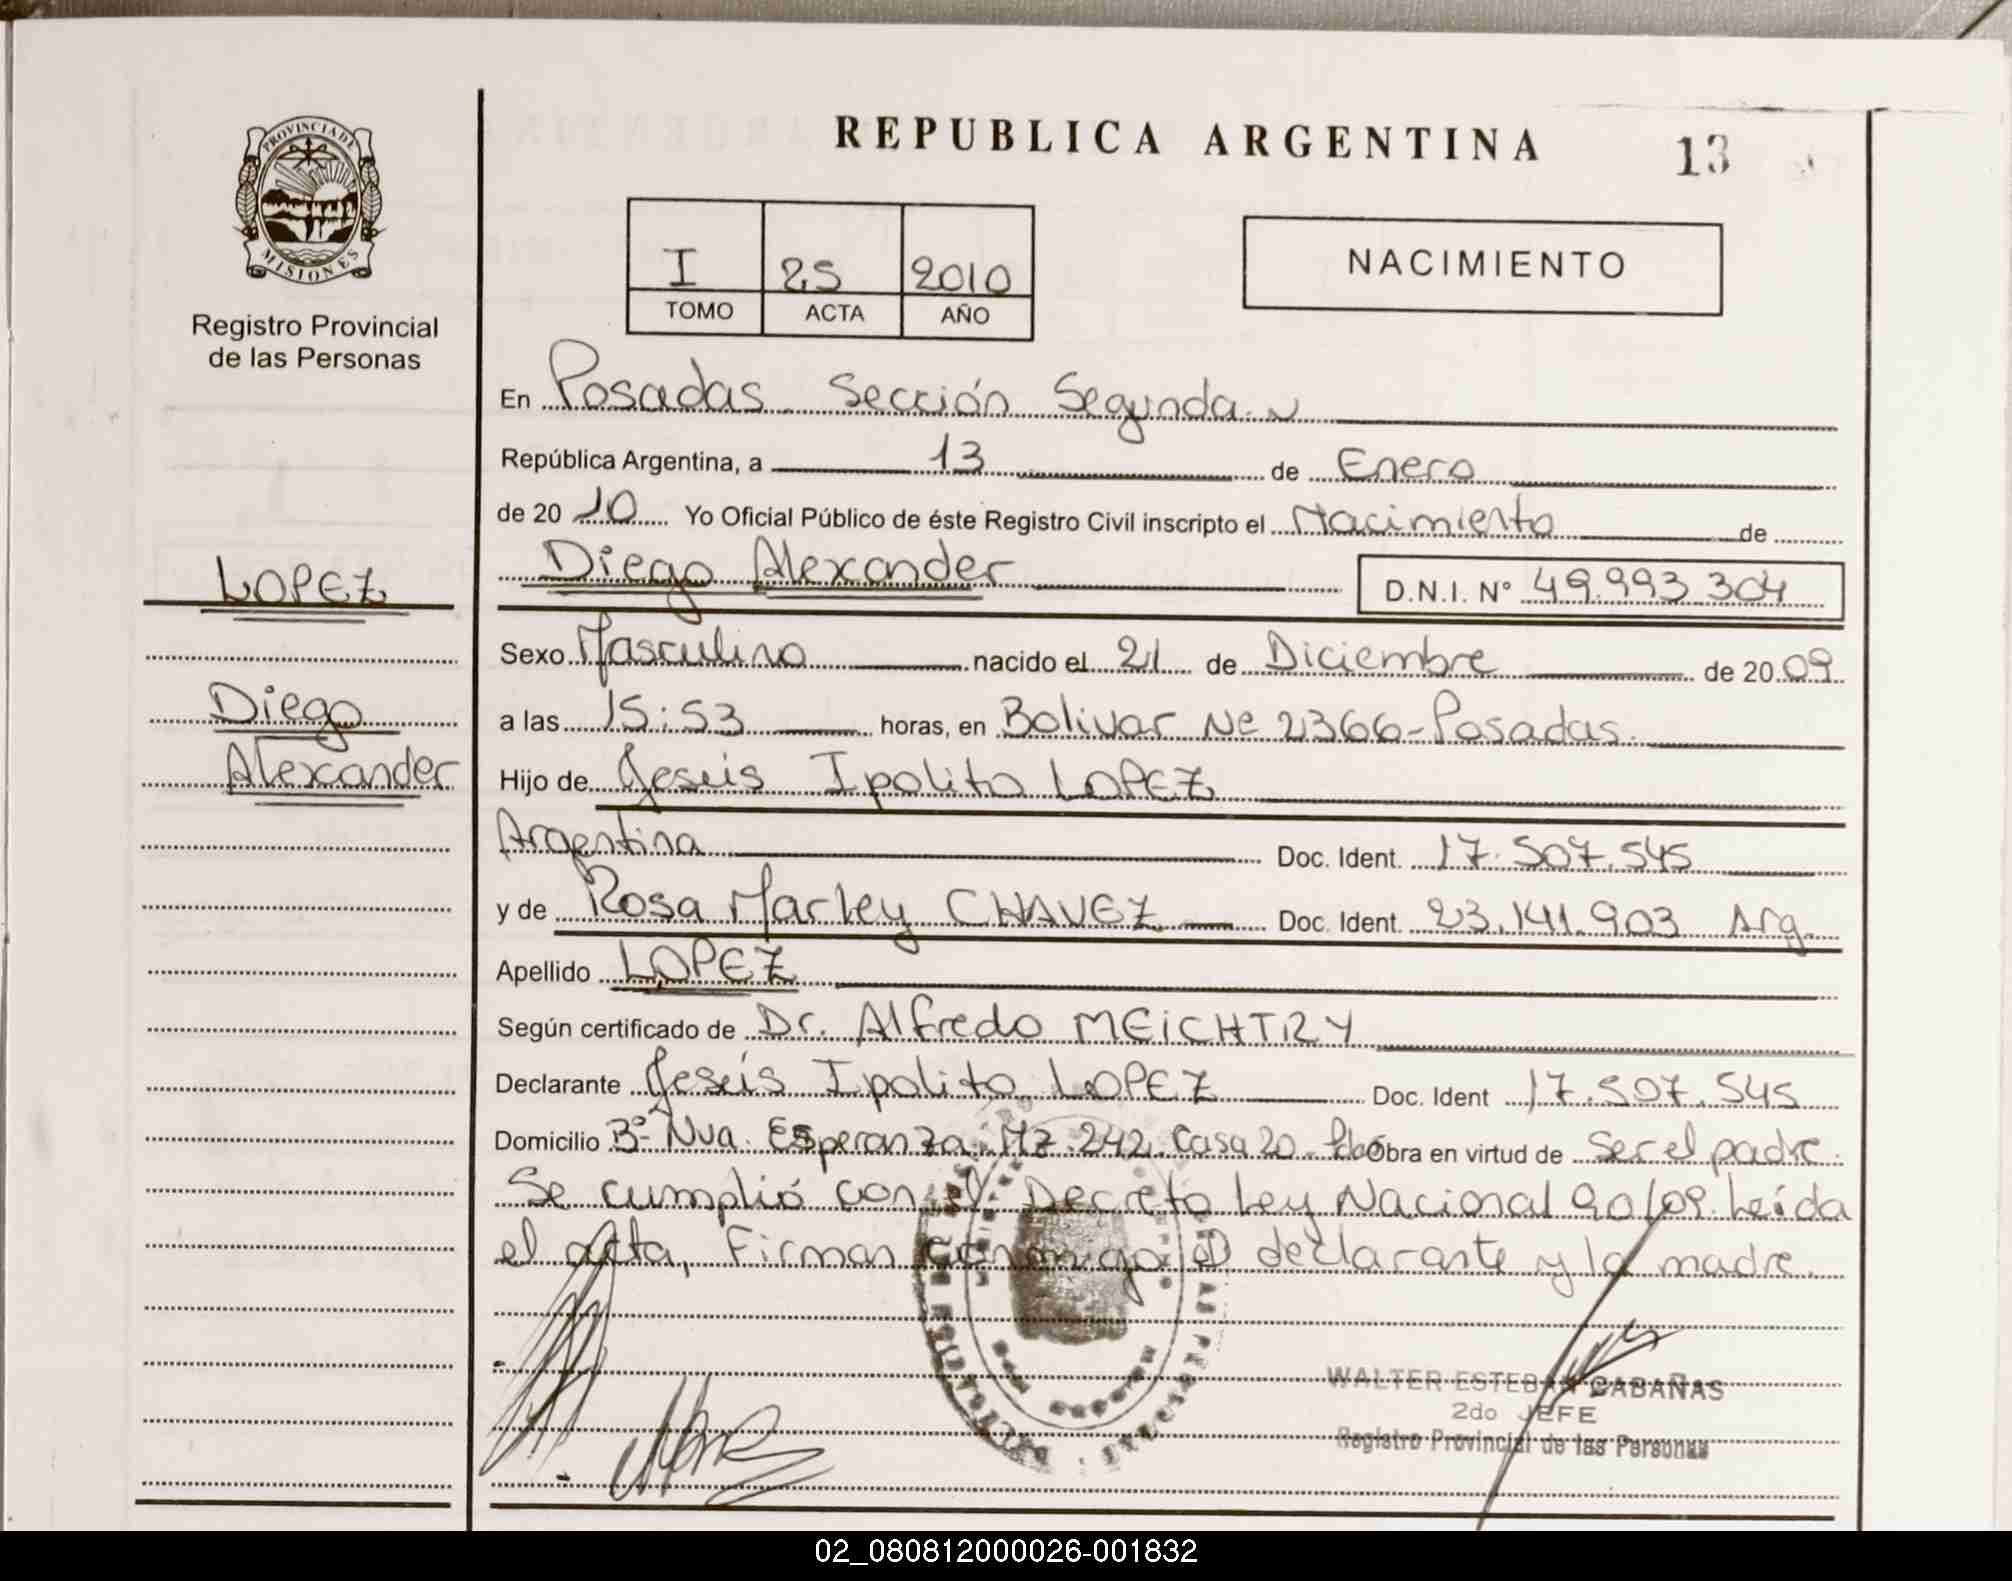 REPUBLICA ARGENTINA
13
PROVINCIA DE
MISIONES
Registro Provincial
de las Personas
I 25 2010
TOMO ACTA AÑO
NACIMIENTO
En Posadas Sección Segunda
República Argentina, a 13 de Enero
de 20 10 Yo Oficial Público de éste Registro Civil inscripto el Nacimiento de
LOPEZ
Diego Alexander D.N.I. N° 49.993.304
Sexo Masculino nacido el 21 de Diciembre de 20 09
Diego
a las 15:53 horas, en Bolivar Nº 2366 - Posadas.
Alexander
Hijo de Jesús Ipolito LOPEZ
Argentina Doc. Ident. 17.507.545
y de Rosa Marley CHAVEZ Doc. Ident. 23.141.903 Arg.
Apellido LOPEZ
Según certificado de Dr. Alfredo MEICHTRY
Declarante Jesús Ipolito LOPEZ Doc. Ident 17.507.545
Domicilio Bº Nva. Esperanza. Mz. 242. Casa 20. Obra en virtud de Ser el padre.
Se cumplió con el Decreto Ley Nacional 90/09. Leída
el acta, Firman conmigo el declarante y la madre.
WALTER ESTEBAN CABAÑAS
2do JEFE
Registro Provincial de las Personas
02_080812000026-001832